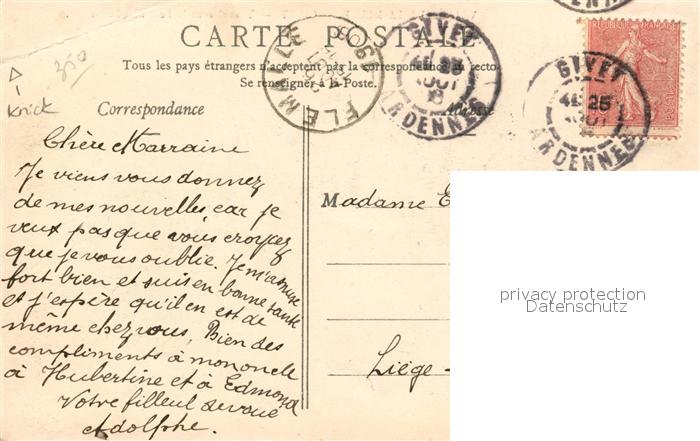 CARTE POSTALE
Tous les pays étrangers n'acceptent pas la correspondance au recto
Se renseigner à la Poste.
350
Knick
Correspondance
Adresse
FLEMALLE
GIVET
25
AOUT
ARDENNES
GIVET
4E 25
AOUT
ARDENNES
Chère Marraine
Je viens vous donner
de mes nouvelles, car je
veux pas que vous croyez
que je vous oublie. Je m'amuse
fort bien et suis en bonne santé
et j'espère qu'il en est de
même chez vous, Bien des
compliments à mon oncle
à Hubertine et à Edmond
Votre filleul dévoué
Adolphe.
Madame
Liége -
privacy protection
Datenschutz